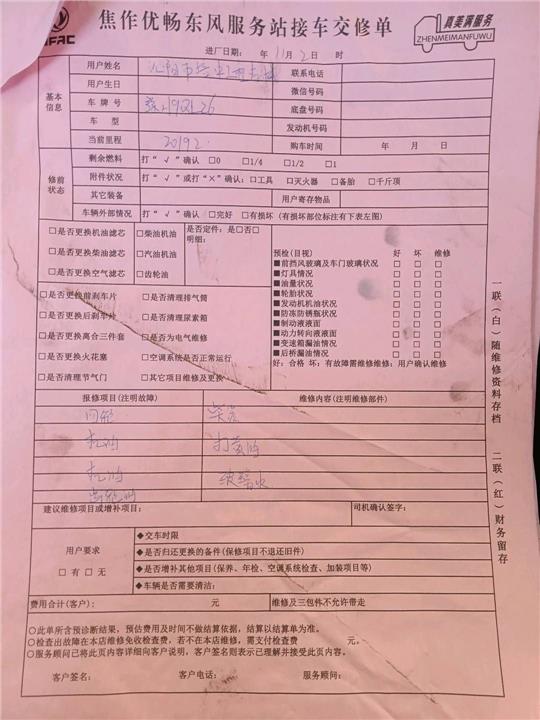 焦作优畅东风服务站接车交修单
真美满服务
ZHENMEIMANFUWU
进厂日期: 年 11月 2日 时
基本信息
用户姓名
联系电话
用户生日
微信号码
车牌号
底盘号码
车 型
发动机号码
当前里程 20192
购车时间 年 月 日
修前状态
剩余燃料 打“√”确认 □0 □1/4 □1/2 □1
附件状况 打“√”或打“×”确认: □工具 □灭火器 □备胎 □千斤顶
其它装备
用户寄存物品
车辆外部情况 打“√”确认 □完好 □有损坏（有损坏部位标注有下表左图）
□是否更换机油滤芯 □柴油机油 是否定件: 是□否□
明细:
□是否更换柴油滤芯 □汽油机油
□是否更换空气滤芯 □齿轮油
□是否更换前刹车片 □是否清理排气筒
□是否更换后刹车片 □是否清理尿素箱
□是否更换离合三件套 □是否为电气维修
□是否更换火花塞 □空调系统是否正常运行
□是否清理节气门 □其它项目维修及更换
预检(目视) 好 坏 维修
■前挡风玻璃及车门玻璃状况 □ □ □
■灯具情况 □ □ □
■油量状况 □ □ □
■轮胎状况 □ □ □
■发动机机油状况 □ □ □
■防冻防锈瓶状况 □ □ □
■制动液液面 □ □ □
■动力转向液液面 □ □ □
■变速箱漏油情况 □ □ □
■后桥漏油情况 □ □ □
好: 合格 坏: 有故障需维修维修: 用户确认维修
报修项目(注明故障) 维修内容(注明维修部件)
机油 打黄油
机油 玻璃水
建议维修项目或增补项目: 司机确认签字:
用户要求
□有□无
◆交车时限
◆是否归还更换的备件(保修项目不退还旧件)
◆是否增补其他项目(保养、年检、空调系统检查、加装项目等)
◆车辆是否需要清洁:
费用合计(客户): 元 维修及三包件不允许带走
○此单所含预诊断结果，预估费用及时间不做结算依据，结算以结算单为准。
○检查出故障在本店维修免收检查费，若不在本店维修，需支付检查费 元。
○服务顾问已将此页内容详细向客户说明，客户签名则表示已理解并接受此页内容。
客户签名: 客户电话: 服务顾问:
一联(白)随维修资料存档
二联(红)财务留存